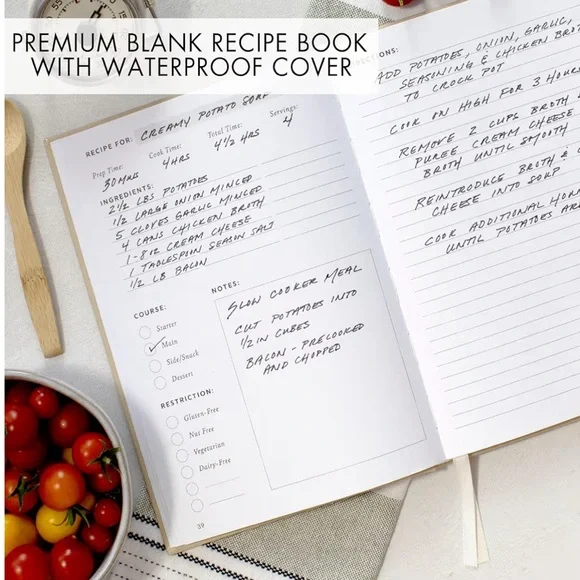 PREMIUM BLANK RECIPE BOOK
WITH WATERPROOF COVER
RECIPE FOR: CREAMY POTATO SOUP
Prep Time: Cook Time: Total Time: Servings:
30 MINS 4 HRS 4 1/2 HRS 4
INGREDIENTS:
2 1/2 LBS POTATOES
1/2 LARGE ONION MINCED
5 CLOVES GARLIC MINCED
4 CANS CHICKEN BROTH
1-8 OZ CREAM CHEESE
1 TABLESPOON SEASON SALT
1/2 LB BACON
COURSE:
Starter
Main
Side/Snack
Dessert
RESTRICTION:
Gluten-Free
Nut Free
Vegetarian
Dairy-Free
NOTES:
SLOW COOKER MEAL
CUT POTATOES INTO
1/2 IN CUBES
BACON - PRECOOKED
AND CHOPPED
59
ADD POTATOES, ONION, GARLIC,
SEASONING & CHICKEN
TO CROCK POT
COOK ON HIGH FOR 3 HOURS
REMOVE 2 CUPS BROTH
PUREE CREAM CHEESE
BROTH UNTIL SMOOTH
REINTRODUCE BROTH &
CHEESE INTO SOUP
COOK ADDITIONAL
UNTIL POTATOES